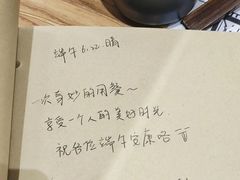 端午 6.22 晴
一次奇妙的用餐~
享受一个人的美好时光.
祝各位端午安康哈